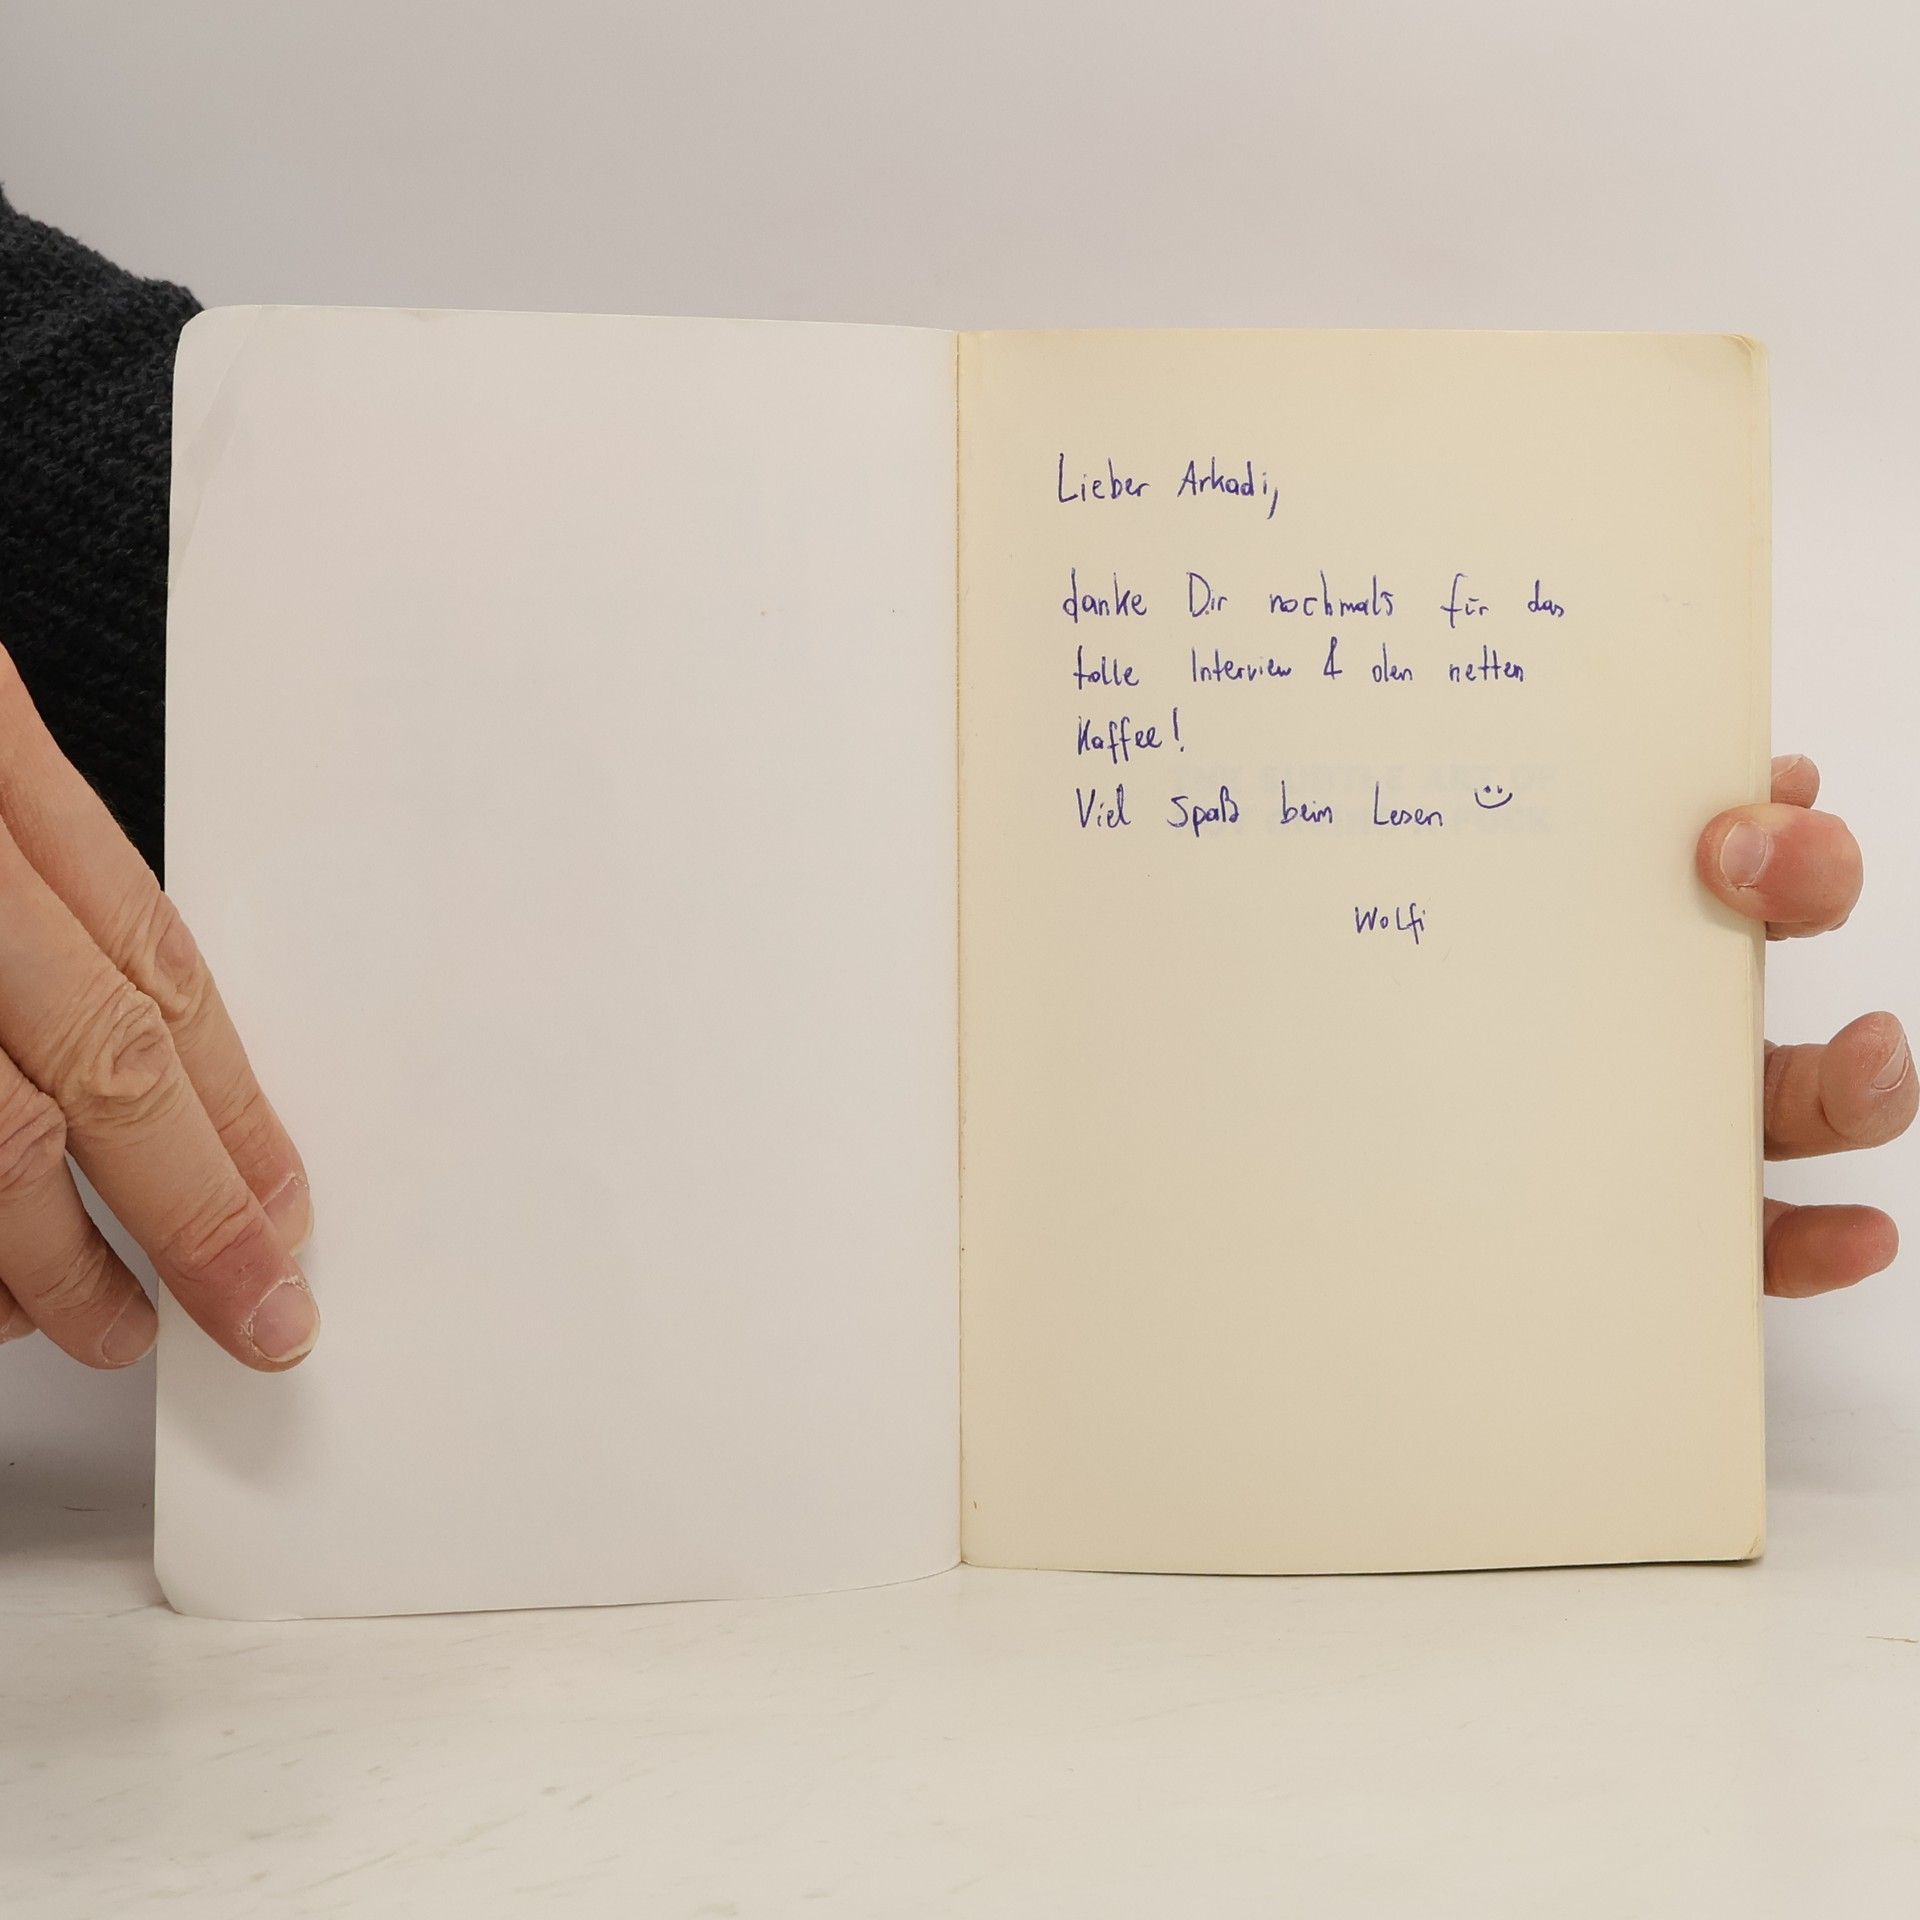 Lieber Arkadi,
danke Dir nochmals für das
tolle Interview & den netten
Kaffee!
Viel Spaß beim Lesen ☺
Wolfi